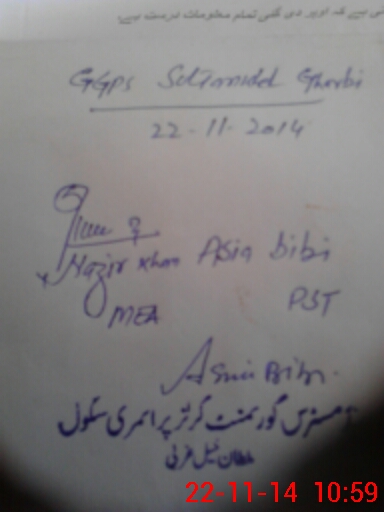 ہی ہے کہ اوپر دی گئی تمام معلومات درست ہیں۔
GGPS Gharbi
22-11-2014
Nazir Khan Asia bibi
MEA PST
Asia Bibi.
مسٹریس گورنمنٹ گرلز پرائمری سکول
سلطان خیل غربی
22-11-14 10:59